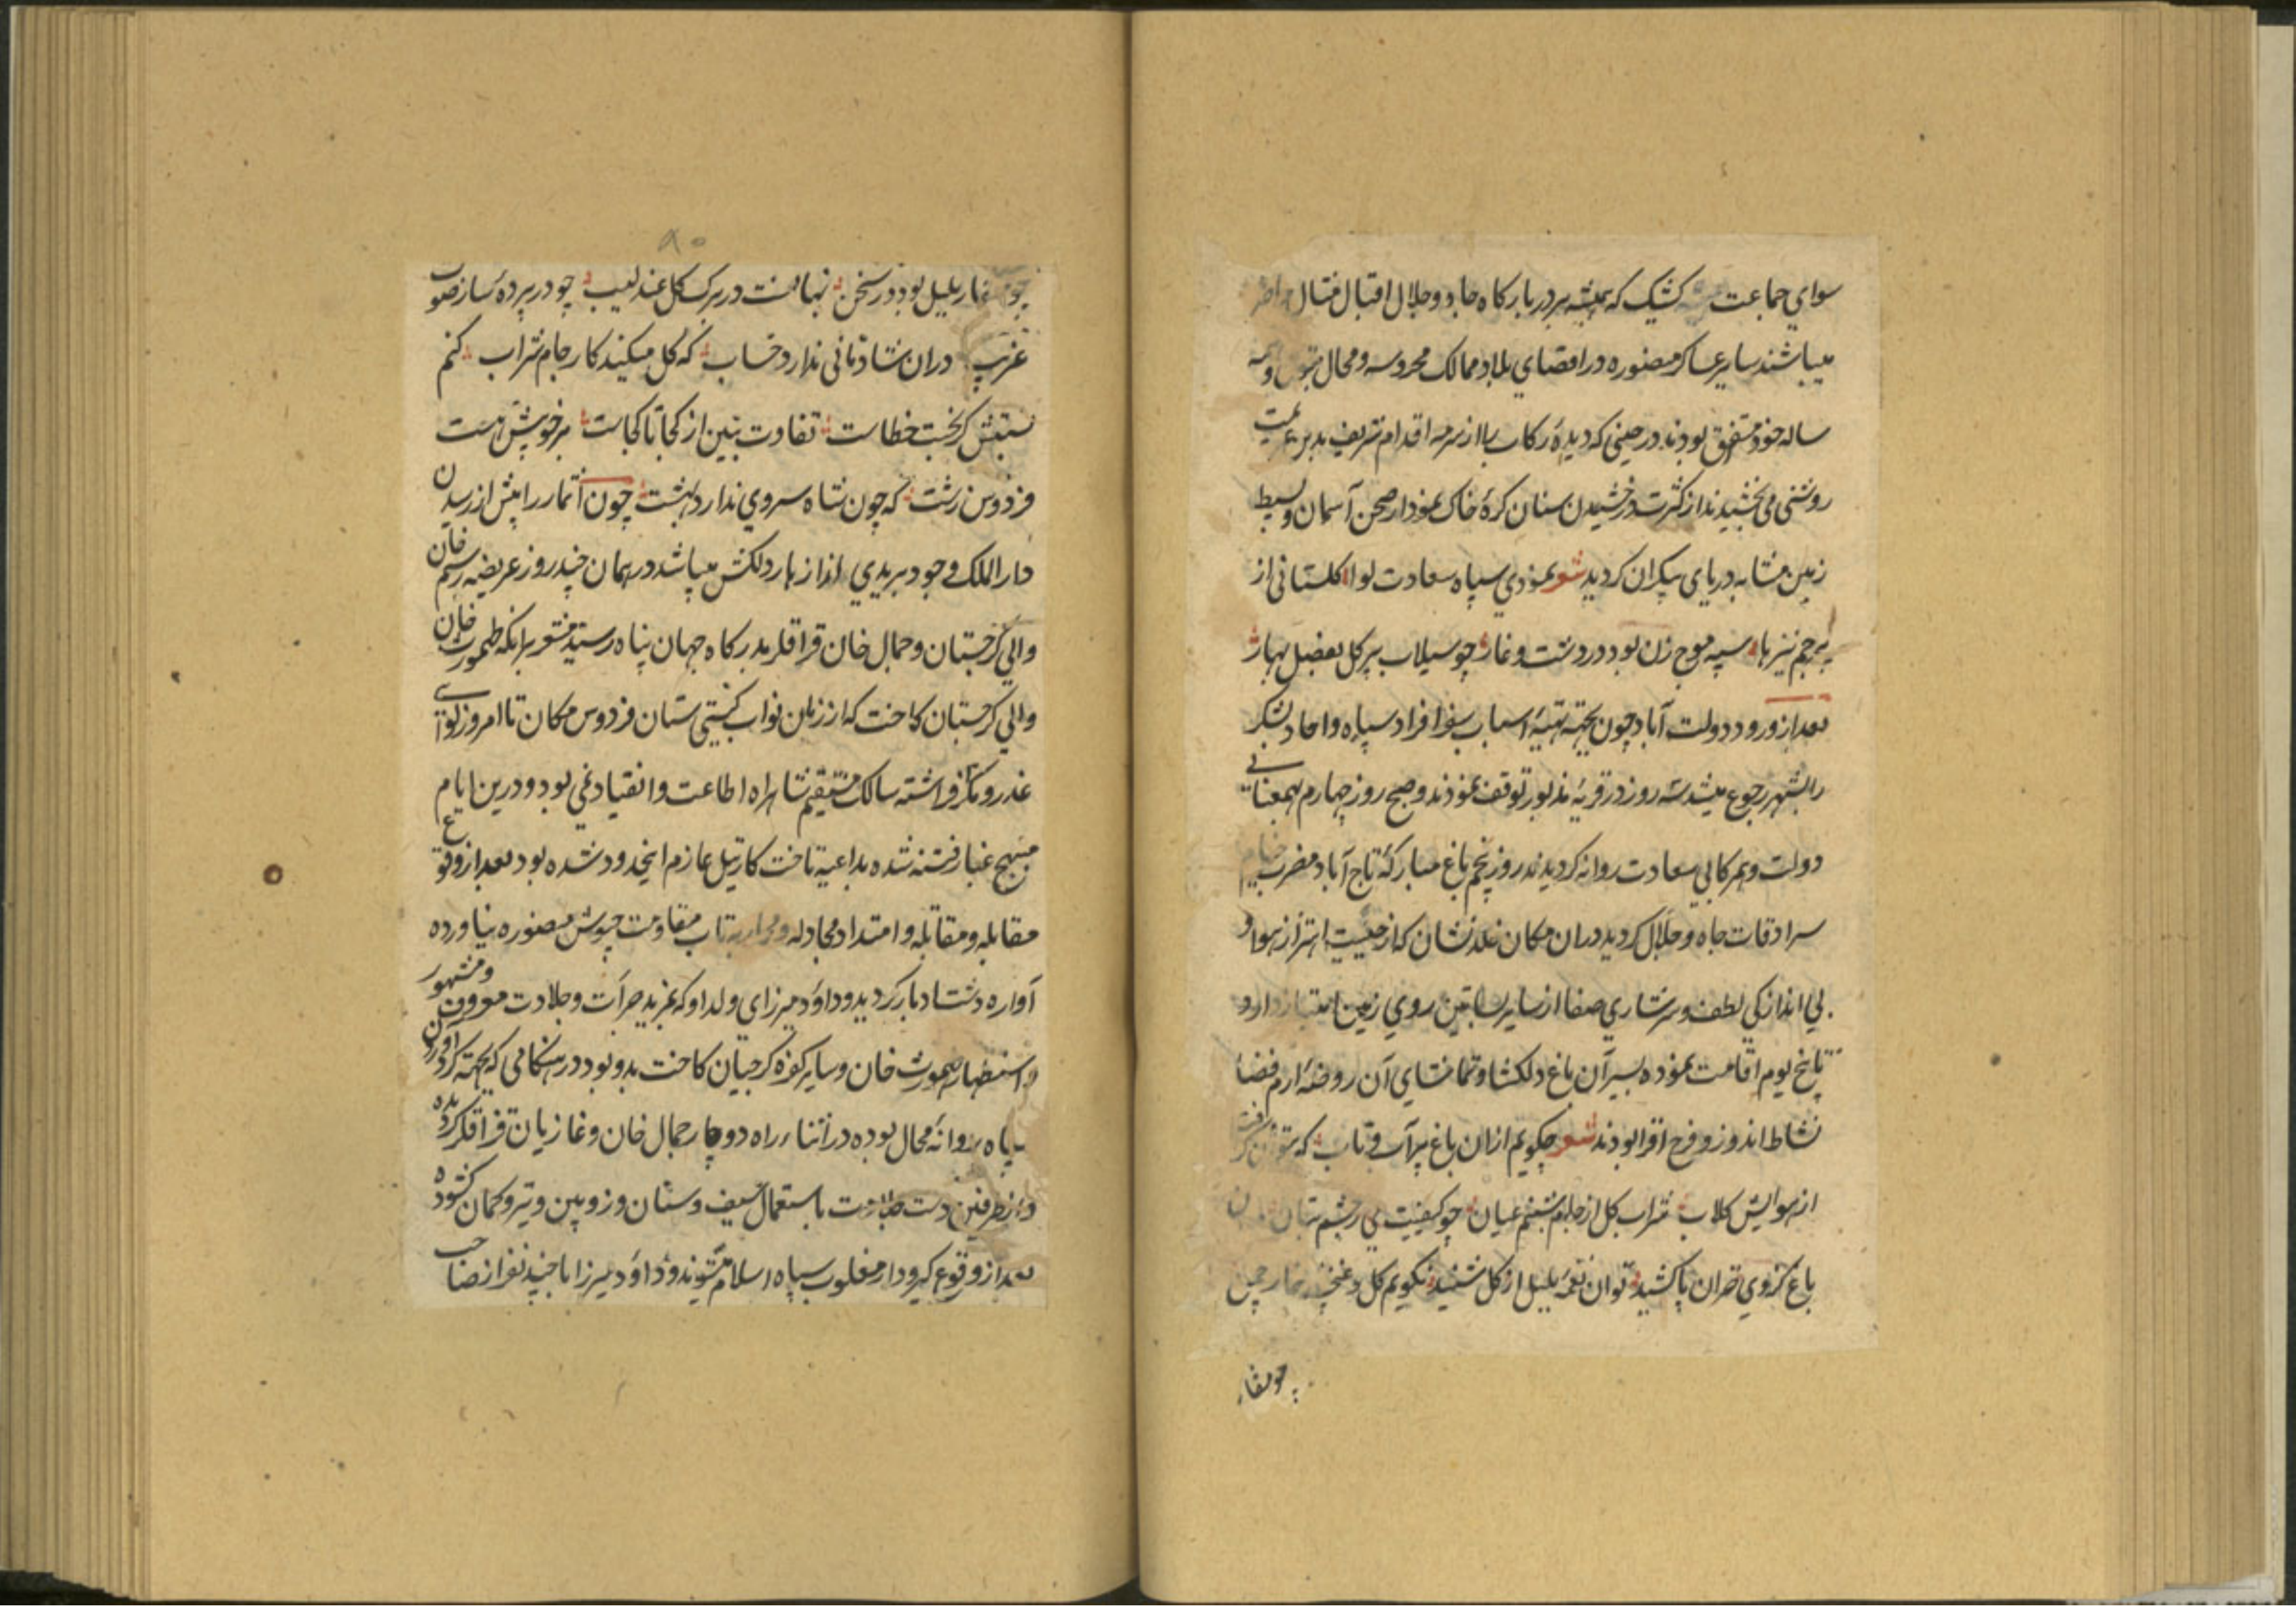 سوای جماعت کشیک که همیشه بر دربار کاه جاه و جلال اقبال مثال حاضر
میباشند سایر عساکر منصوره در اقصای بلاد ممالک محروسه و محال
ساله خود متفرق بودند در حینی که دیدهٔ رکاب را از سرمه اقدام شریف بدین
روشنی می بخشیدند از کثرت درخشیدن سنان کرهٔ خاک نمودار صحن آسمان و بسیط
زمین مشابه دریای بیکران کردید شعر نمودی سپاه سعادت لوا کلستانی از
پرچم نیزها سپه موج زن بود در دشت و غار چو سیلاب پر کل بفصل بهار
بعد از ورود دولت آباد چون بجهته تهیهٔ اسباب سفر افراد سپاه و احاد لشکر
را بشهر رجوع میشد سه روز در قریهٔ مذبور توقف نمودند و صبح روز چهارم بهمعنانی
دولت و همرکابی سعادت روانه کردیدند روز پنجم باغ مبارکهٔ تاج آباد مضرب خیام
سرادقات جاه و جلال کردید دران مکان خلد نشان که از حیثیت اهتزاز هوا و
بی اندازکی لطف و سرشاری صفا از سایر بساتین روی زمین امتیاز دارد
پنج یوم اقامت نموده بسیر آن باغ دلکشا و تماشای آن روضهٔ ارم فضا
نشاط اندوز و فرح افزا بودند شعر چکویم ازان باغ پر آب و تاب که توان گرفت
از هوایش کلاب شراب کل از جام شبنم عیان چو کیفیت می ز چشم بتان
باغ کزوی خزان پا کشید توان نغمهٔ بلبل از کل شنید نکویم کل و غنچه خار چمن
چو منقار
چو منقار بلبل بود در سخن نهانست در برک کل عندلیب چو در پردهٔ ساز صوت
غریب دران شادمانی ندارد حساب که کل میکند کار جام شراب کنم
نسبتش کر بجنت خطاست تفاوت ببین از کجا تا کجاست بر خویش است
فردوس زشت که چون شاه سروی ندارد بهشت چون اثمار را پیش از رسیدن
دار الملک وجود بریدی انداز بار دلکش میباشد در همان چند روز عریضه رستم خان
والی کرجستان و جمال خان قراقلر بدرکاه جهان پناه رسید مشعر برانکه طهمورث خان
والی کرجستان کاخت که از زمان نواب کیتی ستان فردوس مکان تا امروز لوای
غدر و مکر افراشته سالک مستقیم شاهراه اطاعت و انقیاد نمی بود و درین ایام
مهیج غبار فتنه شده بداعیهٔ تاخت کارتیل عازم اینحدود شده بود بعد از وقوع
مقابله و مقاتله و امتداد مجادله و محاربه تاب مقاومت جیوش منصوره نیاورده
آواره دشت ادبار کردید و داود میرزای ولد او که بمزید جرأت و جلادت معروف و مشهور
و استظهار طهمورث خان و سایر کفره کرجیان کاخت بدو بود در هنکامی که بجهته کرد آوردن
سپاه روانهٔ محال بوده در اثناء راه دوچار جمال خان و غازیان قراقلر کردیده
و از طرفین دست جلادت باستعمال سیف و سنان و زوبین و تیر و کمان کشوده
بعد از وقوع کیرودار مغلوب سپاه اسلام میشوند و داود میرزا با چند نفر از صاحب